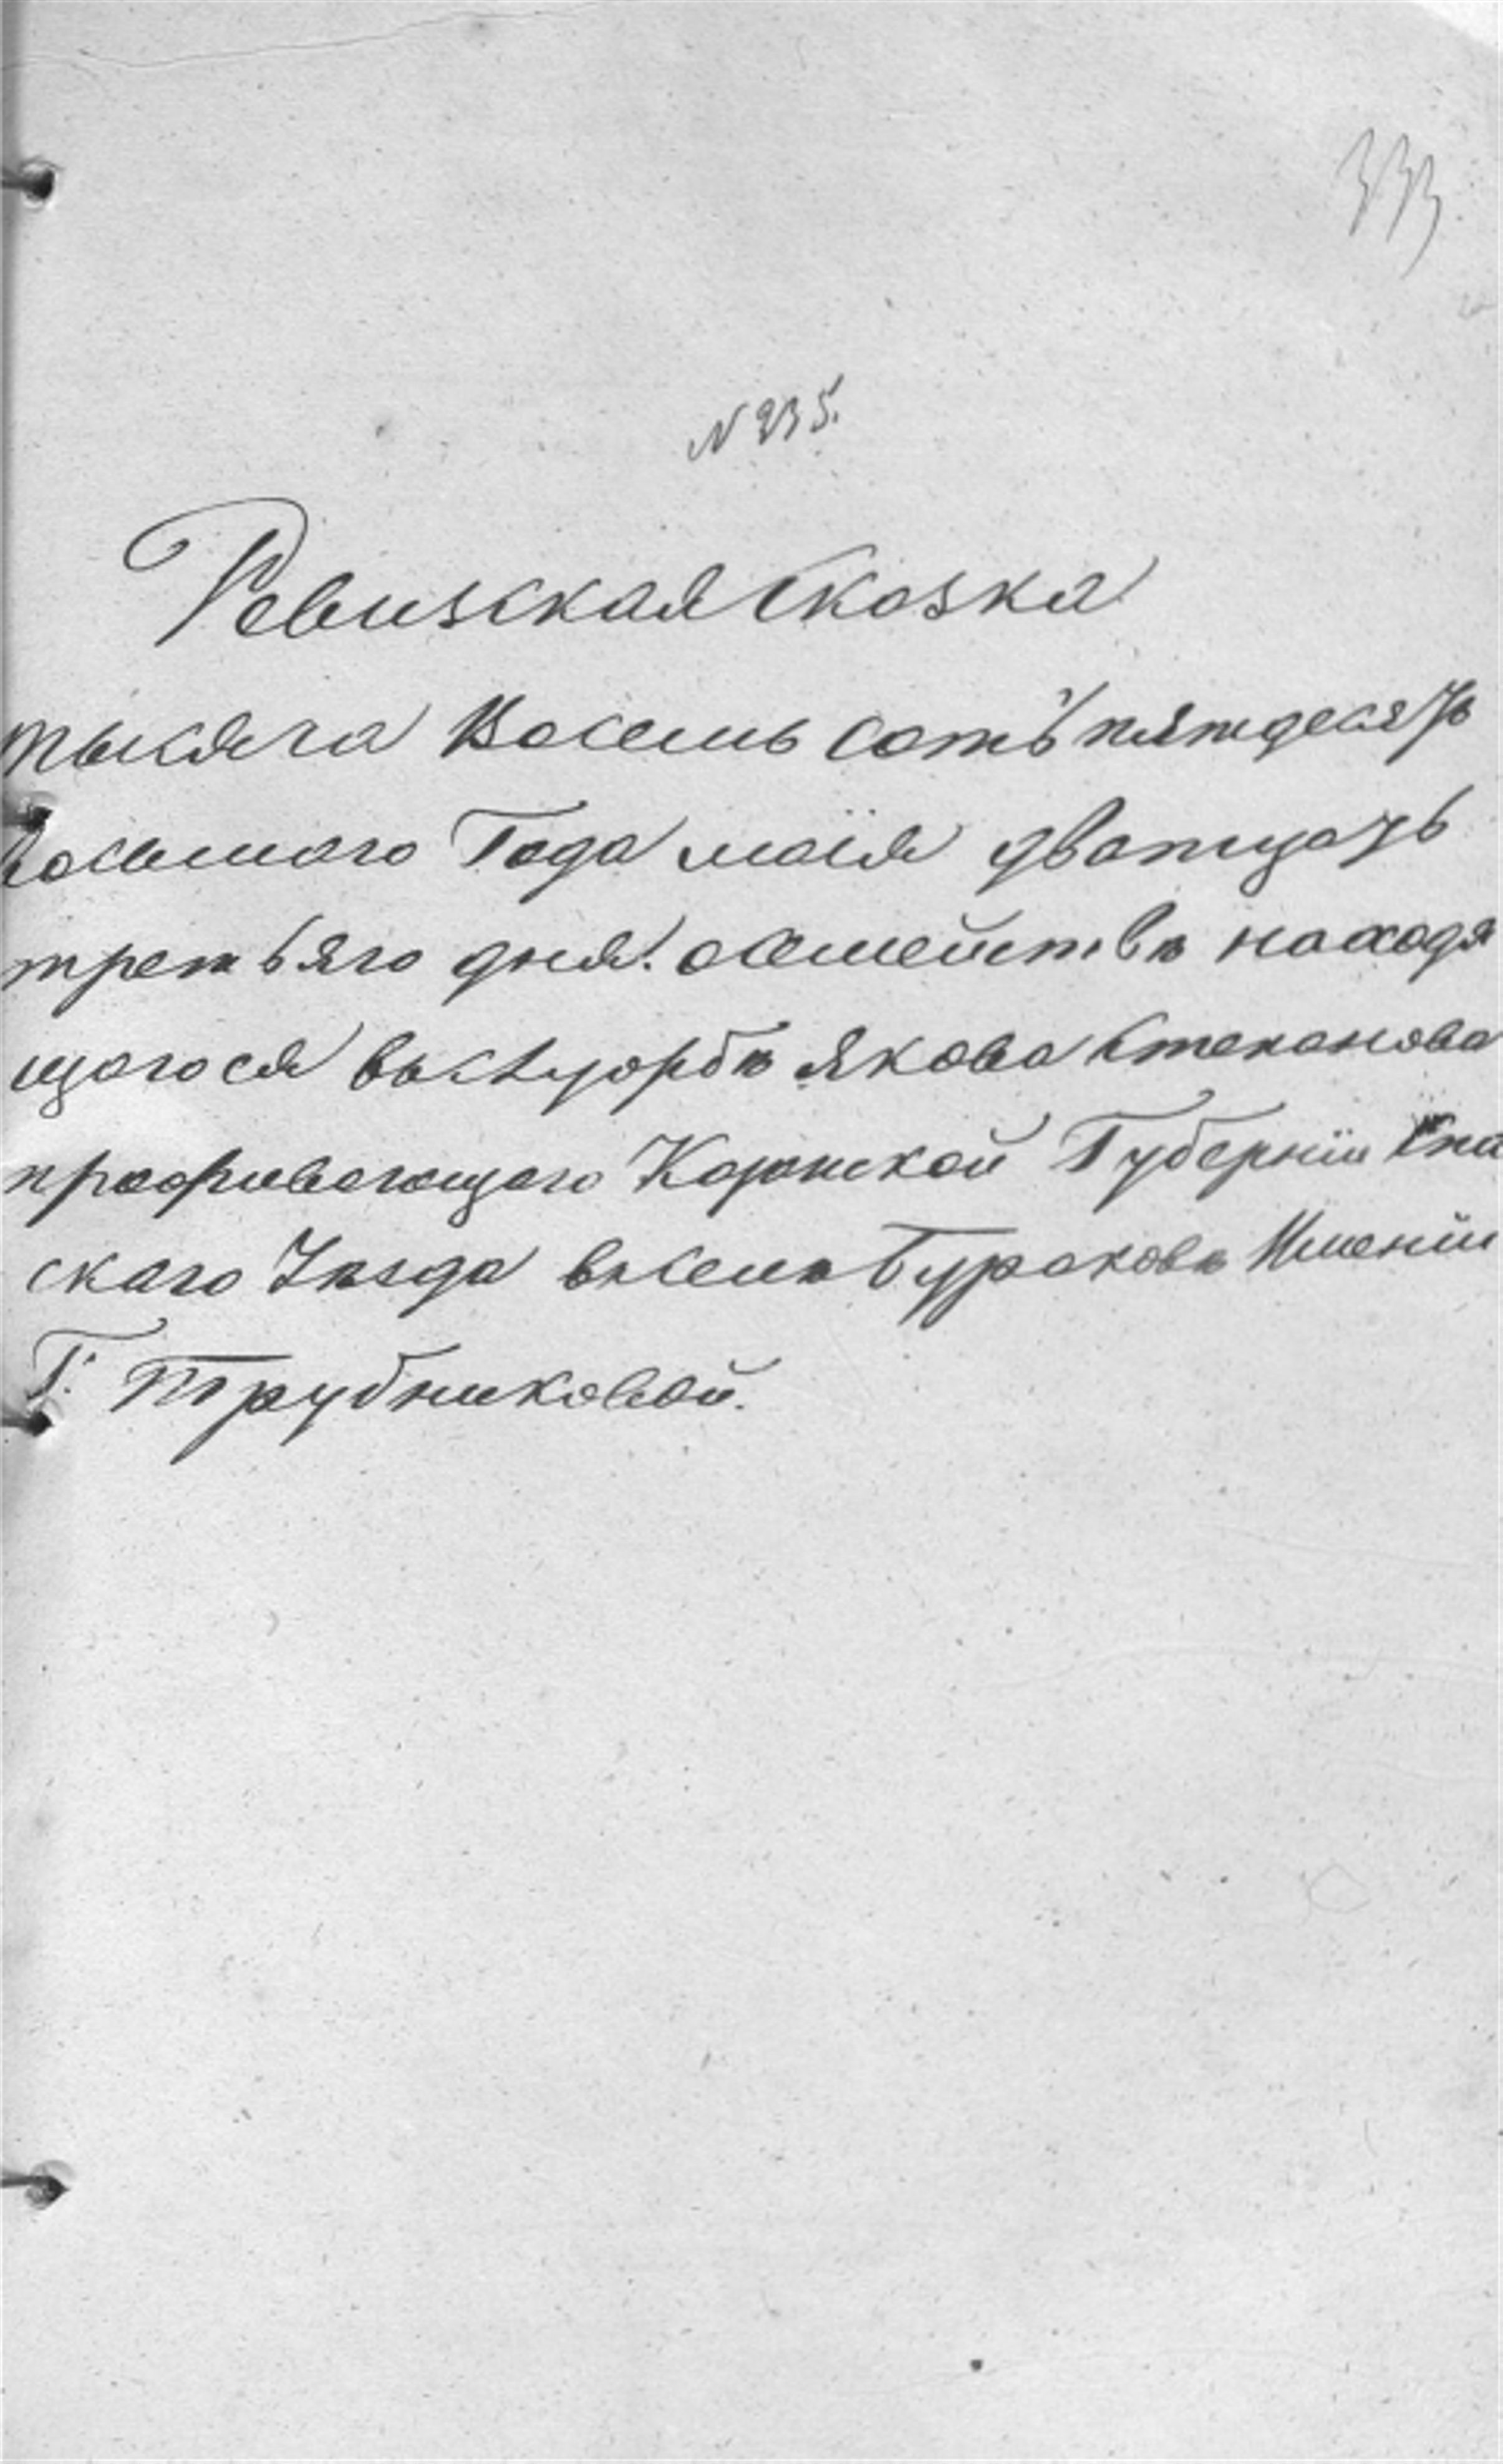 333
N 235.
Ревизская Сказка
тысяча Восемь сотъ пятдесятъ
восьмого Года маія дватцать
третьяго дня. осемействѣ находя
щагося Якова Степанова
проживающаго Казанской Губерніи Спа
скаго Уѣзда вселѣ Бураковѣ Имении
Г. Трубниковой.